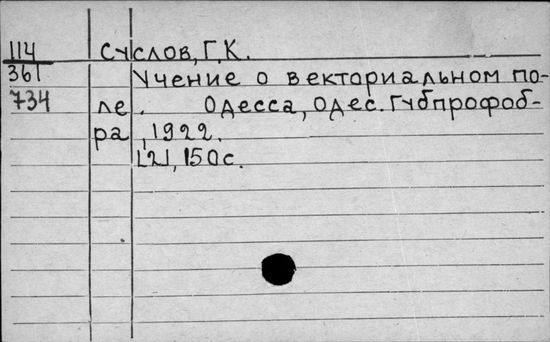 114 Суслов, Г. К.
361 Учение о векториальном по-
734 ле. Одесса, Одес. Губпрофоб-
ра, 1922.
[2], 150 с.